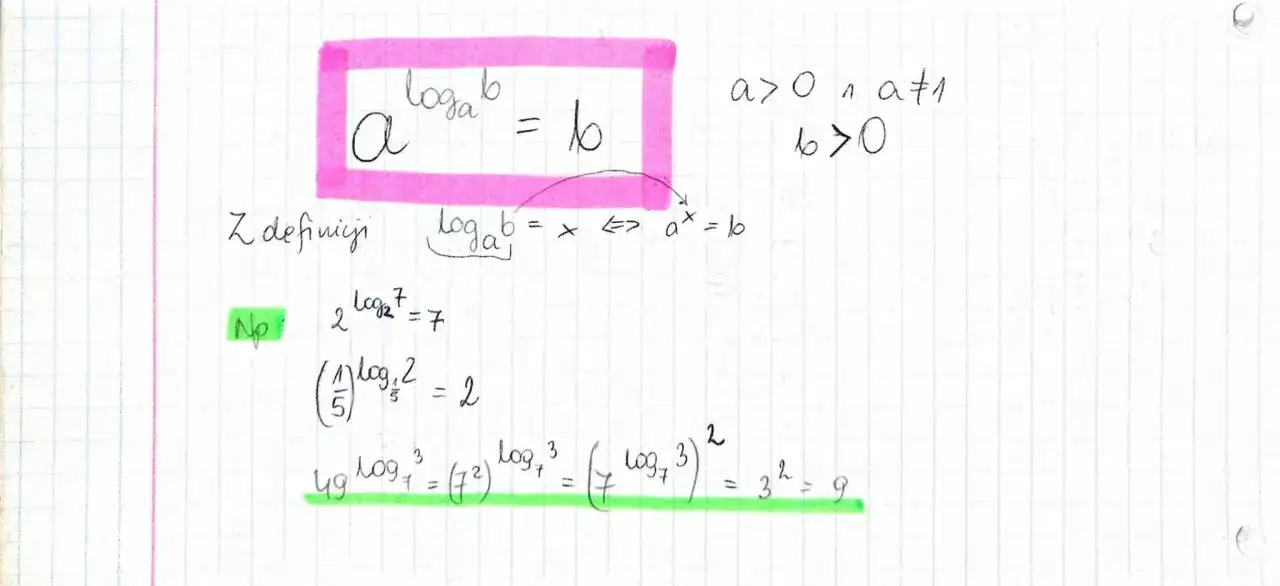 a^{log_a b} = b
a > 0 ∧ a ≠ 1
b > 0
Z definicji log_a b = x <=> a^x = b
Np 2^{log_2 7} = 7
(1/5)^{log_{1/5} 2} = 2
49^{log_7 3} = (7^2)^{log_7 3} = (7^{log_7 3})^2 = 3^2 = 9